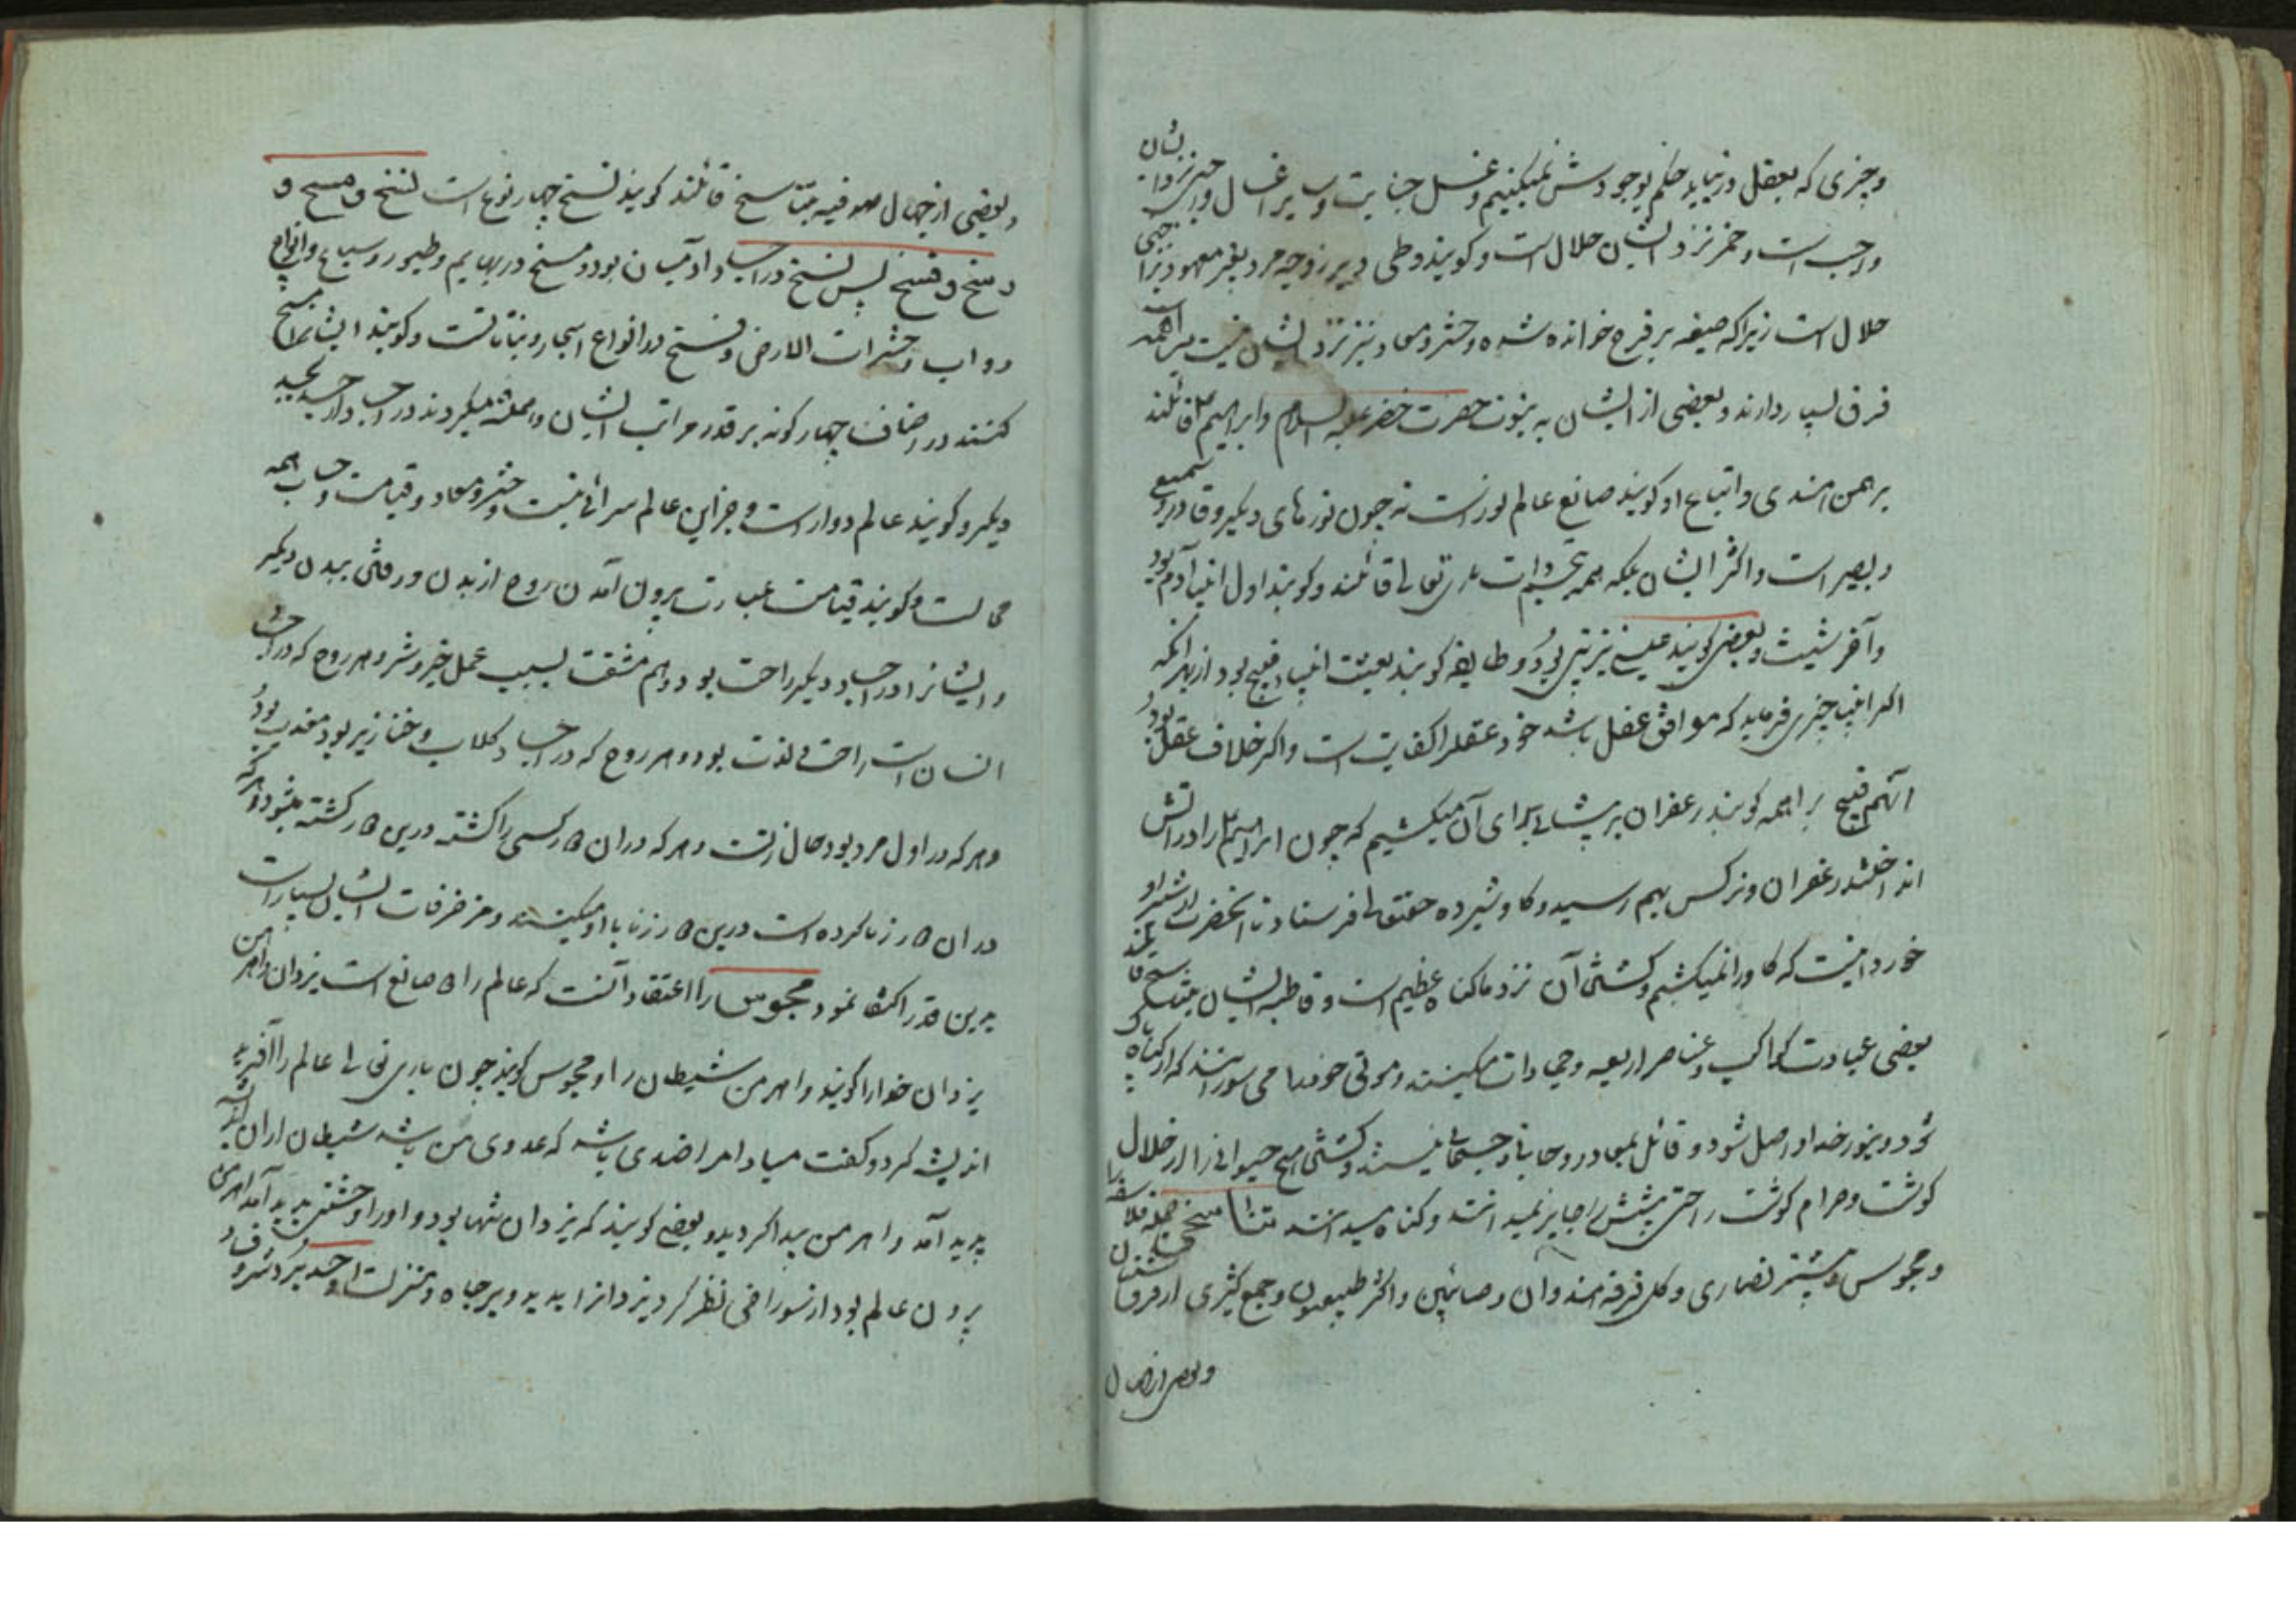 و چیزی که بعقل درنیاید حکم بوجودش نمیکنیم و غسل جنابت و سایر اغسال واجب نزد ایشان
واجب است و خمر نزد ایشان حلال است و کویند وطی دبر زوجه مرد بغیر معهود
حلال است زیراکه صیغه بر فرج خوانده شده و حشر و معاد نیز نزد ایشان نیست براهمه
فرق بسیار دارند و بعضی از ایشان به نبوت حضرت خضر علیه السلام و ابراهیم ع قائلند
برهمن هندی و اتباع او کویند صانع عالم نور است نه چون نورهای دیکر و قادر و سمیع
و بصیر است و اکثر ایشان بلکه همه تعالی قائلند و کویند اول انبیا آدم بود
و آخر شیث و بعضی کویند عیسی نیز نبی بود و طایفه کویند بعثت انبیا قبیح بود از بهر آنکه
اکر انبیا چیزی فرماید که موافق عقل باشد خود عقل را کفایت است و اکر خلاف عقل بود
آنهم قبیح براهمه کویند زعفران بر پیشانی برای آن میکشیم که چون ابراهیم ع را در آتش
انداختند زعفران و نرکس بهم رسید و کاو شیرده حقتعالی فرستاد تا آنحضرت از شیر او
خورد اینست که کاو را نمیکشیم و کشتن آن نزد ما کناه عظیم است و قاطبه ایشان بتناسخ قائلند
بعضی عبادت کواکب و عناصر اربعه و جمادات میکنند و موتی خود را می سوزانند که از کناه پاک
شود و بنور خدا واصل شود و قائل بمعاد روحانی و جسمانی نیستند و کشتن هیچ حیوانی را از حلال
کوشت و حرام کوشت را حتی شپش را جایز نمیدانند و کناه میدانند تناسخیه
و مجوس و بیشتر نصاری و کل فرقه هندوان و صائبین و اکثر طبیعیون و جمع کثیری از فرق
و بعضی از جهال
و بعضی از جهال صوفیه بتناسخ قائلند کویند تناسخ چهار نوع است نسخ و مسخ و
رسخ و فسخ پس نسخ در اجساد آدمیان بود و مسخ در بهایم و طیور و سباع و انواع
دواب و حشرات الارض و فسخ در انواع اشجار و نباتات و کویند ایشانرا نسخ
کنند در اصناف چهار کونه بر قدر مراتب ایشان و میکردند در
دیکر و کویند عالم دوار است و جز این عالم سرائی نیست و حشر و معاد و قیامت و حساب همه
محالست و کویند قیامت عبارت بیرون آمدن روح از بدن و رفتن ببدن دیکر
و ایشانرا در اجساد دیکر راحت بود و هم مشقت بسبب عمل خیر و شر و هر روح که در اجساد
انسان است راحت لذت بود و هر روح که در اجساد کلاب و خنازیر بود معذب بود
و هر که در اول مرد بود حال زنست و هر که در ان کار کسی را کشته درین کار کشته میشود و هر که
در ان کار زنا کرده است درین کار زنا با او میکنند و مزخرفات ایشان بسیار است
برین قدر اکتفا نمود مجوس را اعتقاد آنست که عالم را صانع است یزدان و اهرمن
یزدان خدا را کویند و اهرمن شیطان را و مجوس کویند چون باری تعالی عالم را آفرید
اندیشه کرد و کفت مبادا مرا ضدی باشد که عدوی من باشد شیطان از ان اندیشه
پدید آمد و اهرمن پیدا کردید و بعضی کویند که یزدان تنها بود و او را وحشتی پدید آمد اهرمن
بیرون عالم بود از سوراخی نظر کرد یزدانرا بدید و بر جاه و منزلت او حسد برد شر و فساد